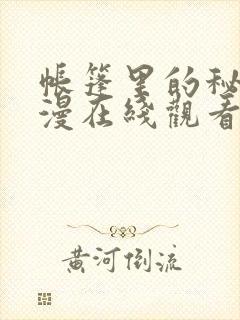 帳篷里的秘
漫在綫觀看
黃河倒流